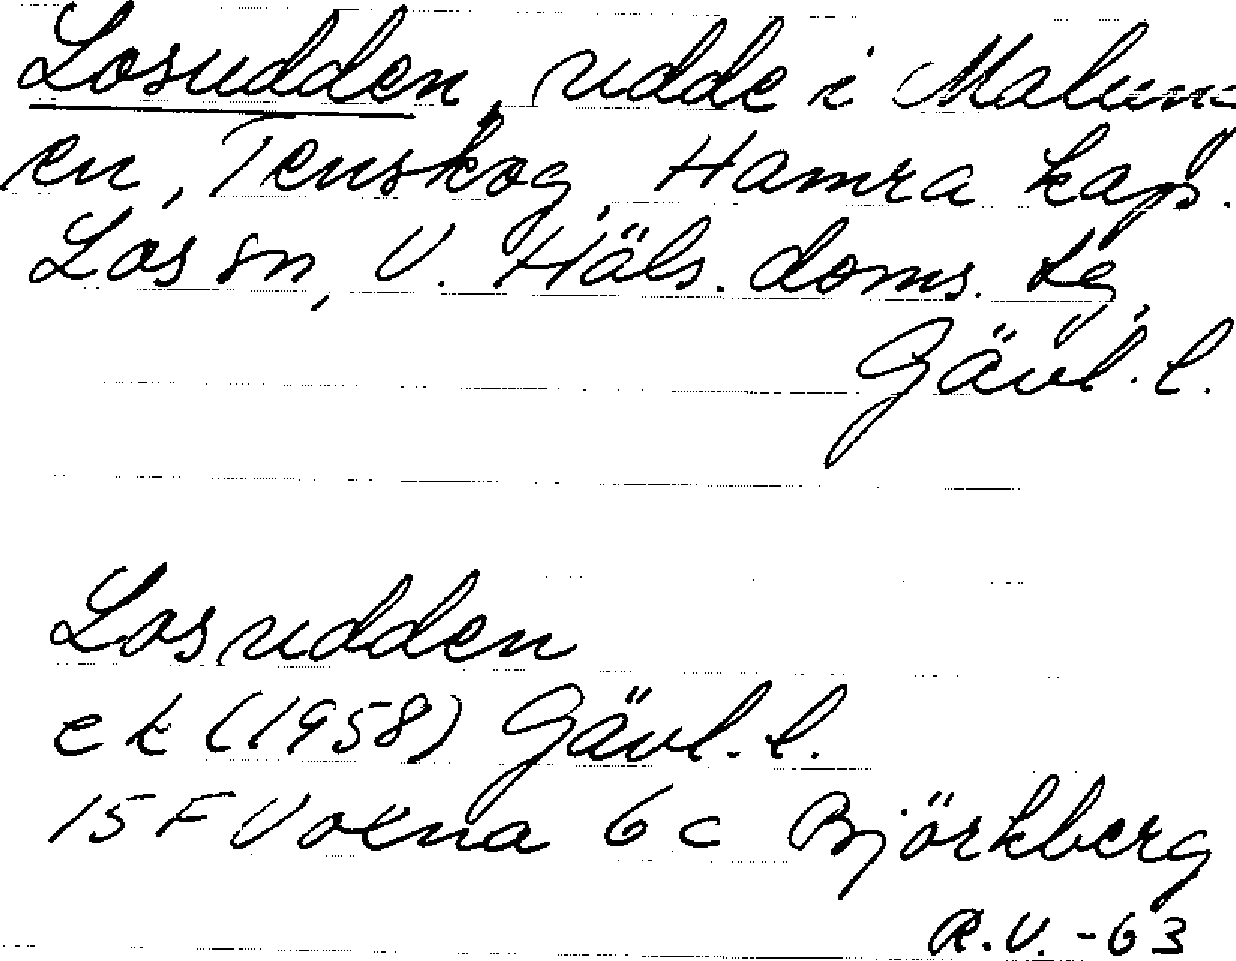 Losudden, udde i Malun-
en, Tenskog, Hamra kap.
Los sn, V. Häls. doms. tg,
Gävl. l.
Losudden
ek (1958) Gävl. l.
15 F Voxna 6 c Björkberg
R.V. -63